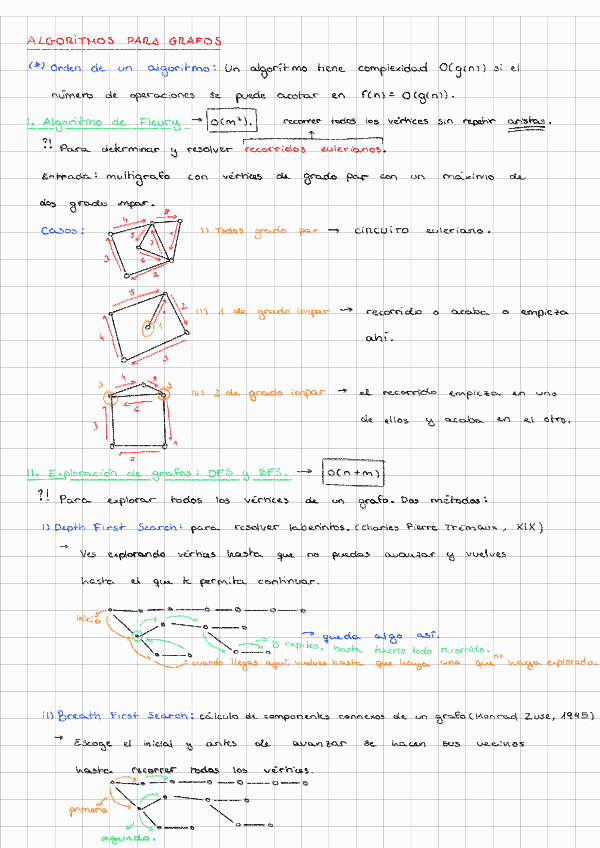 ALGORITMOS PARA GRAFOS
(*) Orden de un algoritmo: Un algoritmo tiene complexidad O(g(n)) si el
número de operaciones se puede acotar en f(n) = O(g(n)).
I. Algoritmo de Fleury → O(m²). recorrer todos los vértices sin repetir aristas.
?! Para determinar y resolver recorridos eulerianos.
Entrada: multigrafo con vértices de grado par con un máximo de
dos grado impar.
Casos: i) Todos grado par → CIRCUITO euleriano.
ii) 1 de grado impar → recorrido o acaba o empieza
ahí.
iii) 2 de grado impar → el recorrido empieza en uno
de ellos y acaba en el otro.
II. Exploración de grafos: DFS y BFS. → O(n+m)
?! Para explorar todos los vértices de un grafo. Dos métodos:
i) Depth First Search: para resolver laberintos. (Charles Pierre Trémaux, XIX)
→ Ves explorando vértices hasta que no puedas avanzar y vuelves
hasta el que te permita continuar.
inicio
→ queda algo así.
→ y repites, hasta tenerlo todo recorrido.
: cuando llegas aquí, vuelves hasta que haya uno que no haya explorado.
ii) Breath First Search: cálculo de componentes connexos de un grafo (Konrad Zuse, 1945)
→ Escoge el inicial y antes de avanzar se hacen sus vecinos
hasta recorrer todos los vértices.
primero
segundo.